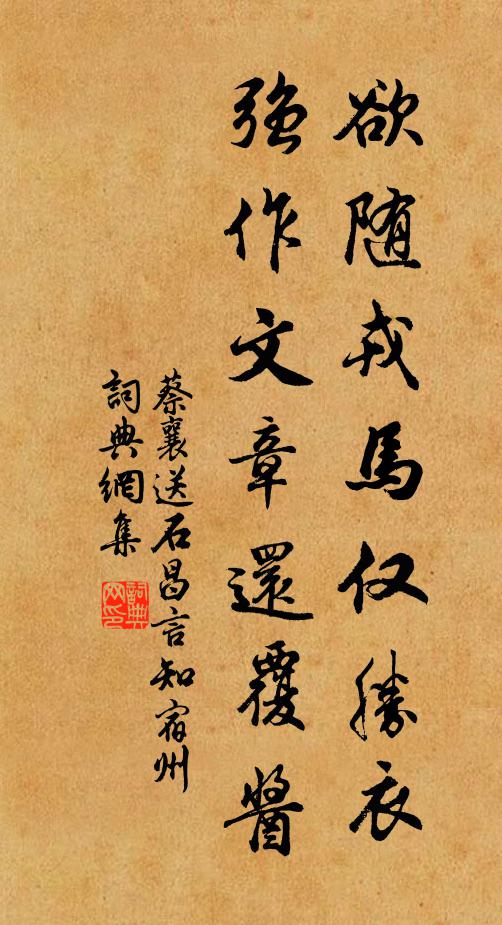 欲随戎馬仅勝衣
強作文章還覆醬
蔡襄送石昌言知宿州
詞典網集
詞典
网印